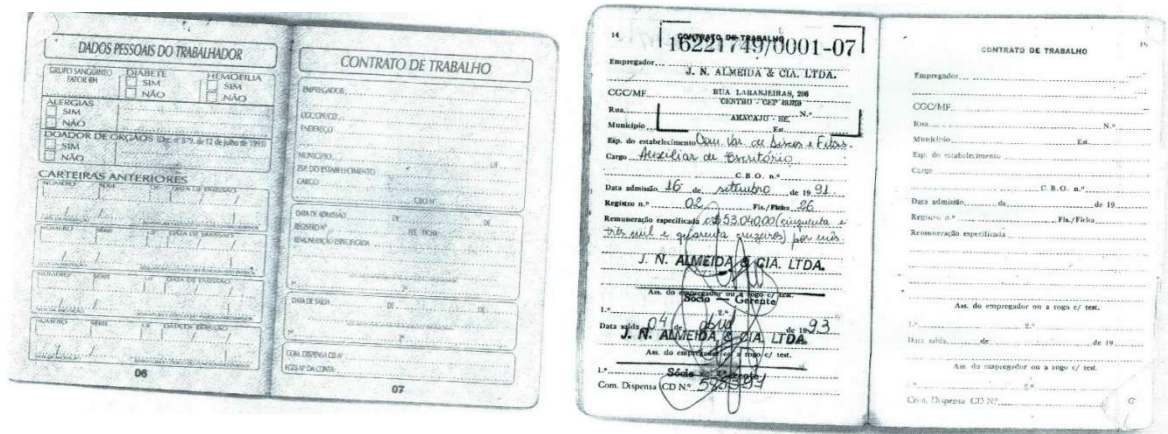 DADOS PESSOAIS DO TRABALHADOR
GRUPO SANGUÍNEO
FATOR RH
DIABETE
SIM
NÃO
HEMOFILIA
SIM
NÃO
ALERGIAS
SIM
NÃO
DOADOR DE ORGÃOS (Dec. nº 879, de 12 de julho de 1993)
SIM
NÃO
CARTEIRAS ANTERIORES
NÚMERO SÉRIE UF DATA DE EMISSÃO
NÚMERO SÉRIE UF DATA DE EMISSÃO
NÚMERO SÉRIE UF DATA DE EMISSÃO
NÚMERO SÉRIE UF DATA DE EMISSÃO
06
CONTRATO DE TRABALHO
EMPREGADOR
CGC/CPF/CEI
ENDEREÇO
MUNICÍPIO UF
ESP. DO ESTABELECIMENTO
CARGO
CBO Nº
DATA DE ADMISSÃO DE DE
REGISTRO Nº FLS. FICHA
REMUNERAÇÃO ESPECIFICADA
DATA DE SAÍDA DE
COM. DISPENSA CD Nº
FGTS Nº DA CONTA
07
14
CONTRATO DE TRABALHO
16221749/0001-07
Empregador
J. N. ALMEIDA & CIA. LTDA.
CGC/MF
RUA LARANJEIRAS, 206
CENTRO - CEP
Rua N.º
ARACAJU - SE.
Município Est.
Esp. do estabelecimento Com. Var. de Discos e Fitas.
Cargo Auxiliar de Escritório
C.B.O. n.º
Data admissão 16 de setembro de 19 91
Registro n.º 02 Fls./Ficha 26
Remuneração especificada Cr$ 53.040,00 (cinquenta e
três mil e quarenta cruzeiros) por mês.
J. N. ALMEIDA & CIA. LTDA.
Ass. do empregador ou a rogo c/ test.
Sócio - Gerente
1.º 2.º
Data saída 04 de abril de 19 93
J. N. ALMEIDA & CIA. LTDA.
Ass. do empregador ou a rogo c/ test.
1.º Sócio - Gerente
Com. Dispensa CD N.º
15
CONTRATO DE TRABALHO
Empregador
CGC/MF
Rua N.º
Município Est.
Esp. do estabelecimento
Cargo
C.B.O. n.º
Data admissão de de 19
Registro n.º Fls./Ficha
Remuneração especificada
Ass. do empregador ou a rogo c/ test.
1.º 2.º
Data saída de de 19
Ass. do empregador ou a rogo c/ test.
1.º 2.º
Com. Dispensa CD N.º